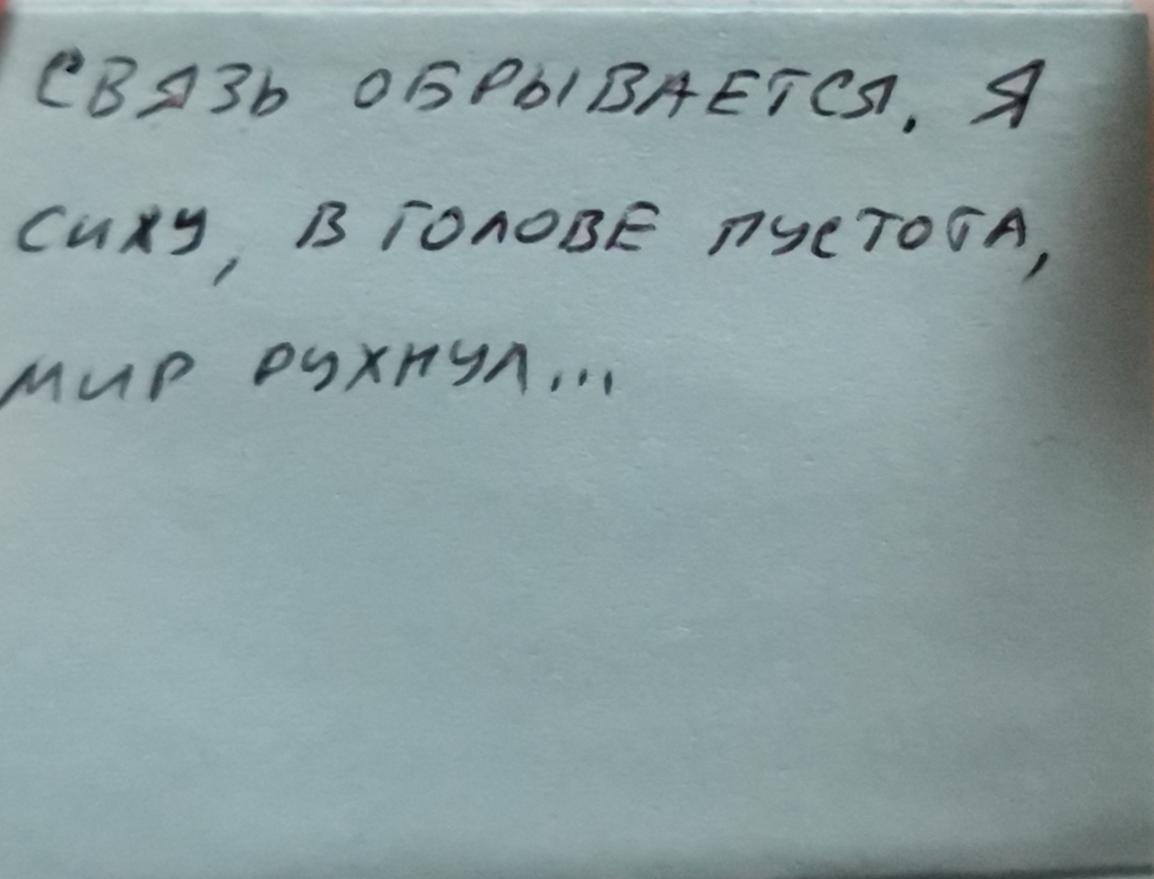 СВЯЗЬ ОБРЫВАЕТСЯ. Я
СИЖУ, В ГОЛОВЕ ПУСТОТА,
МИР РУХНУЛ...